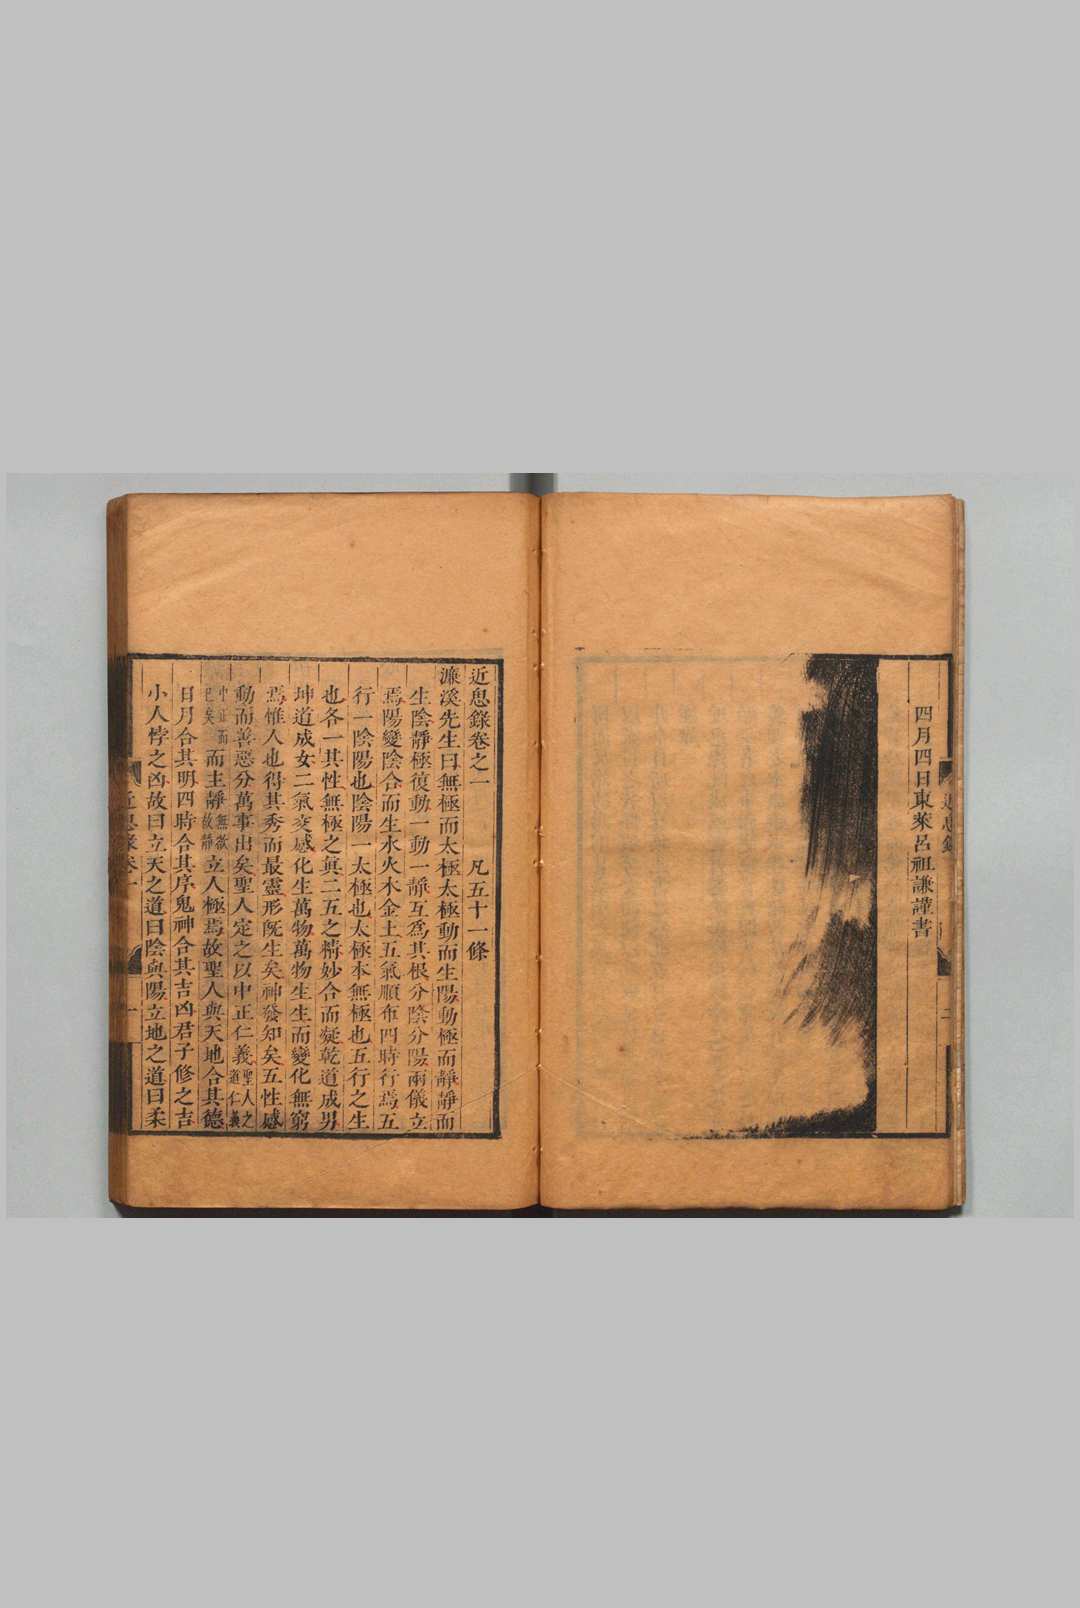 四月四日東萊呂祖謙謹書
近思錄
二
近思錄卷之一　凡五十一條
濂溪先生曰無極而太極太極動而生陽動極而靜靜而
生陰靜極復動一動一靜互爲其根分陰分陽兩儀立
焉陽變陰合而生水火木金土五氣順布四時行焉五
行一陰陽也陰陽一太極也太極本無極也五行之生
也各一其性無極之眞二五之精妙合而凝乾道成男
坤道成女二氣交感化生萬物萬物生生而變化無窮
焉惟人也得其秀而最靈形旣生矣神發知矣五性感
動而善惡分萬事出矣聖人定之以中正仁義聖人之道仁義
中正而已矣而主靜無欲故靜立人極焉故聖人與天地合其德
日月合其明四時合其序鬼神合其吉凶君子修之吉
小人悖之凶故曰立天之道曰陰與陽立地之道曰柔
近思錄卷一
一